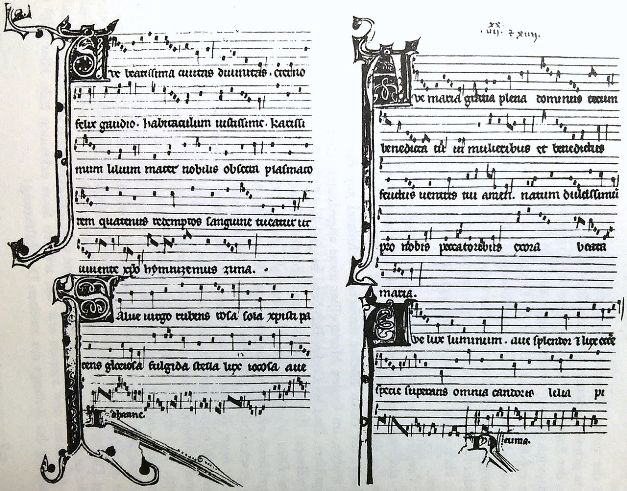 Ave beatissima civitas divinitatis . eterno
felix gaudio . habitaculum iustissime . karissi
mum lilium mater nobilis obsecra plasmato
rem quatenus redemptos sanguine tueatur ut
vivente xpo hymnizemus zima .
Salve virgo rubens rosa sola xpisti pa
rens gloriosa fulgida stella lux iocosa ave
Iohanne.
Ave maria gratia plena dominus tecum
benedicta tu in mulieribus et benedictus
fructus ventris tui amen . natum dulcissimum
pro nobis peccatoribus exora beata
maria.
Ave lux luminum . ave splendor ⁊ lux eccle
specie superans omnia candoris lilia
Neuma.